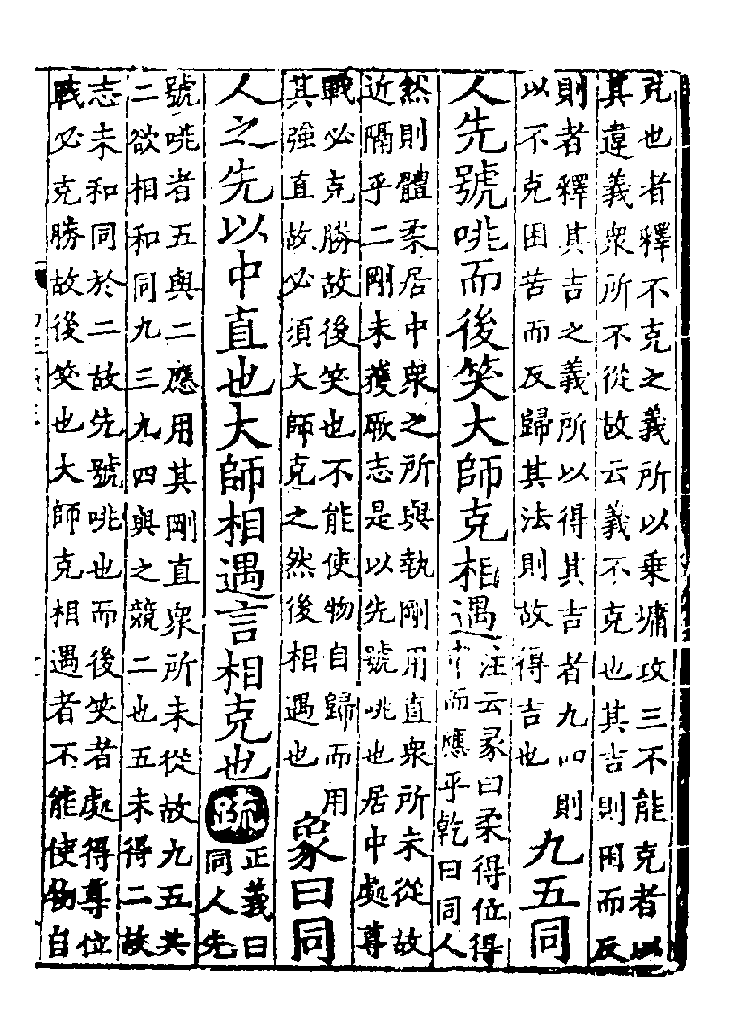 克也者釋不克之義所以乗墉攻三不能克者以
其違義衆所不從故云義不克也其吉則困而反
則者釋其吉之義所以得其吉者九四則
以不克困苦而反歸其法則故得吉也
九五同
人先號咷而後笑大師克相遇
注云彖曰柔得位得
中而應乎乾曰同人
然則體柔居中衆之所與執剛用直衆所未從故
近隔乎二剛未獲厥志是以先號咷也居中處尊
戰必克勝故後笑也不能使物自歸而用
其強直故必須大師克之然後相遇也
象曰同
人之先以中直也大師相遇言相克也
疏
正義曰
同人先
號咷者五與二應用其剛直衆所未從故九五共
二欲相和同九三九四與之競二也五未得二故
志未和同於二故先號咷也而後笑者處得尊位
戰必克勝故後笑也大師克相遇者不能使物自